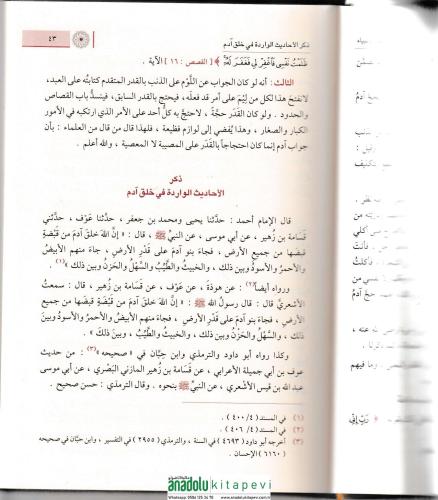 ذكر الأحاديث الواردة في خلق آدم
٤٣
ظَلَمْتُ نَفْسِي فَاغْفِرْ لِي فَغَفَرَ لَهُ ﴾ [القصص : ١٦] الآية .
الثالث : أنه لو كان الجواب عن اللَّوْم على الذنب بالقدر المتقدم كتابتُه على العبد،
لانفتح هذا لكل من لِيْمَ على أمر قد فعلَه، فيحتج بالقدر السابق، فينسدُّ باب القصاص
والحدود . ولو كان القَدَر حجَّة، لاحتجَّ به كلُّ أحد على الأمر الذي ارتكبه في الأمور
الكبار والصغار، وهذا يُفضي إلى لوازم فظيعة، فلهذا قال من قال من العلماء : بأن
جواب آدم إنما كان احتجاجاً بالقَدَر على المصيبة لا المعصية، والله أعلم .
ذكر
الأحاديث الواردة في خلق آدم
قال الإمام أحمد : حدَّثنا يحيى ومحمد بن جعفر، حدَّثنا عَوْف، حدَّثني
قَسامة بن زُهير، عن أبي موسى، عن النبيِّ ﷺ، قال : « إنَّ اللهَ خلقَ آدمَ من قَبْضةٍ
قبضَها من جميعِ الأرضِ، فجاءَ بنو آدمَ على قَدْرِ الأرضِ، جاءَ منهم الأبيضُ
والأحمرُ والأسودُ وبينَ ذلك، والخبيثُ والطَّيِّبُ والسَّهْلُ والحَزْنُ وبينَ ذلك »(١) .
ورواه أيضاً(٢) عن هَوْذة، عن عَوْف، عن قَسامة بن زُهير، قال : سمعتُ
الأشعريَّ قال : قال رسولُ الله ﷺ : « إنَّ اللهَ خلقَ آدمَ من قَبْضَةٍ قبضَها من جميعِ
الأرضِ، فجاءَ بنو آدمَ على قَدْرِ الأرضِ، فجاءَ منهم الأبيضُ والأحمرُ والأسودُ وبينَ
ذلك، والسَّهْلُ والحَزْنُ وبينَ ذلك، والخبيثُ والطَّيِّبُ، وبينَ ذلك » .
وكذا رواه أبو داود والترمذي وابن حِبَّان في « صحيحه »(٣) : من حديث
عوف بن أبي جميلة الأعرابي، عن قَسامة بن زُهير المازني البَصْري، عن أبي موسى
عبد الله بن قيس الأشعري، عن النبيِّ ﷺ بنحوه . وقال الترمذي : حسن صحيح .
(١) في المسند (٤/ ٤٠٠) .
(٢) في المسند (٤/ ٤٠٦) .
(٣) أخرجه أبو داود (٤٦٩٣) في السنة، والترمذي (٢٩٥٥) في التفسير، وابن حبَّان في صحيحه
(٦١٦٠) الإحسان .
anadolu kitapevi